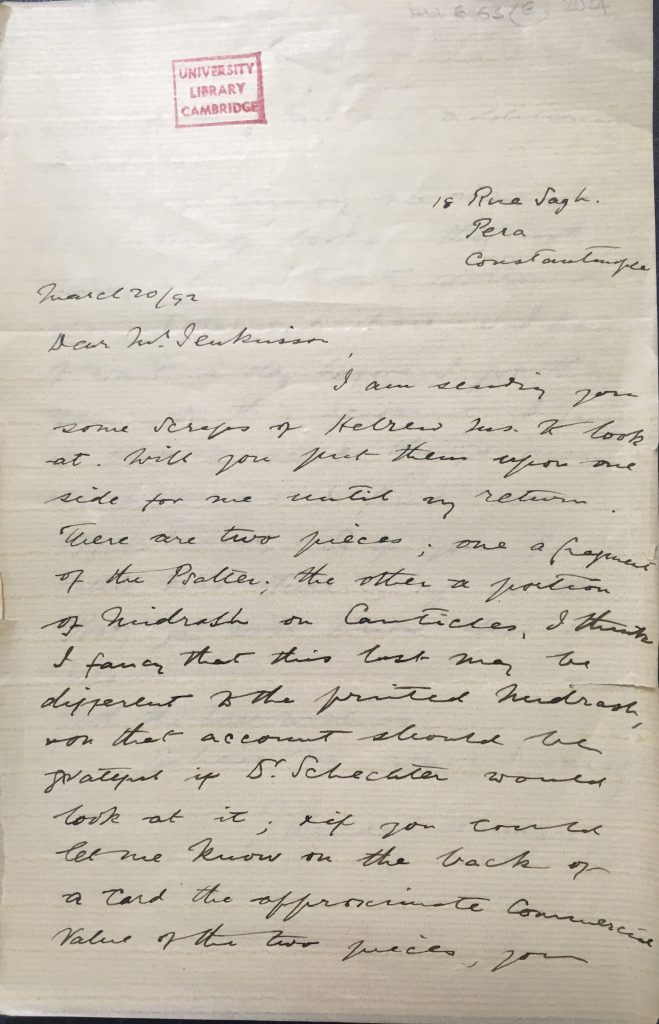 UNIVERSITY
LIBRARY
CAMBRIDGE
18 Rue Sagh.
Pera
Constantinople
March 20/92
Dear Mr. Jenkinson,
I am sending you
some scraps of Hebrew ms. to look
at. Will you put them upon one
side for me until my return.
There are two pieces; one a fragment
of the Psalter; the other a portion
of Midrash on Canticles, I think
I fancy that this last may be
different to the printed Midrash,
& on that account should be
grateful if Dr. Schechter would
look at it; & if you could
let me know on the back of
a card the approximate Commercial
Value of the two pieces, you